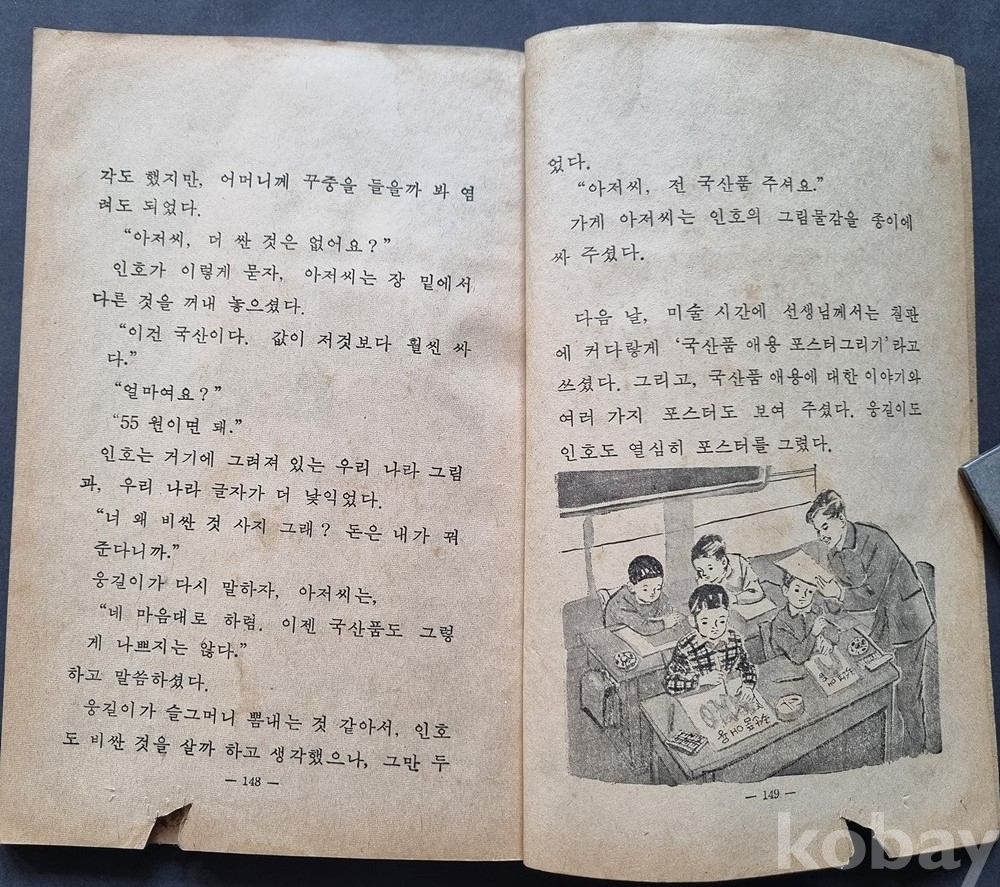 각도 했지만, 어머니께 꾸중을 들을까 봐 염
려도 되었다.
“아저씨, 더 싼 것은 없어요?”
인호가 이렇게 묻자, 아저씨는 장 밑에서
다른 것을 꺼내 놓으셨다.
“이건 국산이다. 값이 저것보다 훨씬 싸
다.”
“얼마여요?”
“55 원이면 돼.”
인호는 거기에 그려져 있는 우리 나라 그림
과, 우리 나라 글자가 더 낯익었다.
“너 왜 비싼 것 사지 그래? 돈은 내가 꿔
준다니까.”
웅길이가 다시 말하자, 아저씨는,
“네 마음대로 하렴. 이젠 국산품도 그렇
게 나쁘지는 않다.”
하고 말씀하셨다.
웅길이가 슬그머니 뽐내는 것 같아서, 인호
도 비싼 것을 살까 하고 생각했으나, 그만 두
— 148 —
었다.
“아저씨, 전 국산품 주셔요.”
가게 아저씨는 인호의 그림물감을 종이에
싸 주셨다.
다음 날, 미술 시간에 선생님께서는 칠판
에 커다랗게 ‘국산품 애용 포스터그리기’라고
쓰셨다. 그리고, 국산품 애용에 대한 이야기와
여러 가지 포스터도 보여 주셨다. 웅길이도
인호도 열심히 포스터를 그렸다.
국산품 애용
— 149 —
kobay